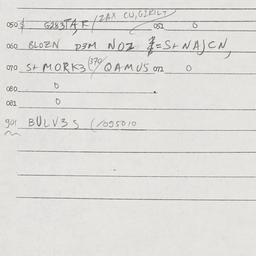 050 G283TA,F/ZAX CU,GIRILT 051 0
060 BLOZN D3M NOZ =S+NAJCN,
070 S+MORK3(370 QAMUS 071 0
080 0
081 0
901 BULV3S (/095010